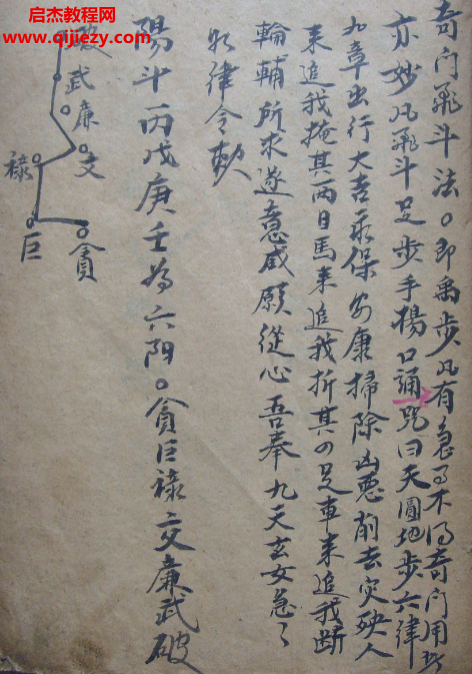 启杰教程网
www.qijiezy.com
奇门飛斗法。即禹步凡有急事不得奇门用此
亦妙凡飛斗足步手揚口誦咒曰天圓地步六律
九章出行大吉永保安康掃除凶惡前去灾殃人
来追我掩其両目馬来追我折其四足車来追我断
輪輔所求遂意咸願從心吾奉九天玄女急々
如律令敕
陽斗丙戊庚壬為六阳。貪巨禄文廉武破
破
武
廉
文
禄
巨
貪